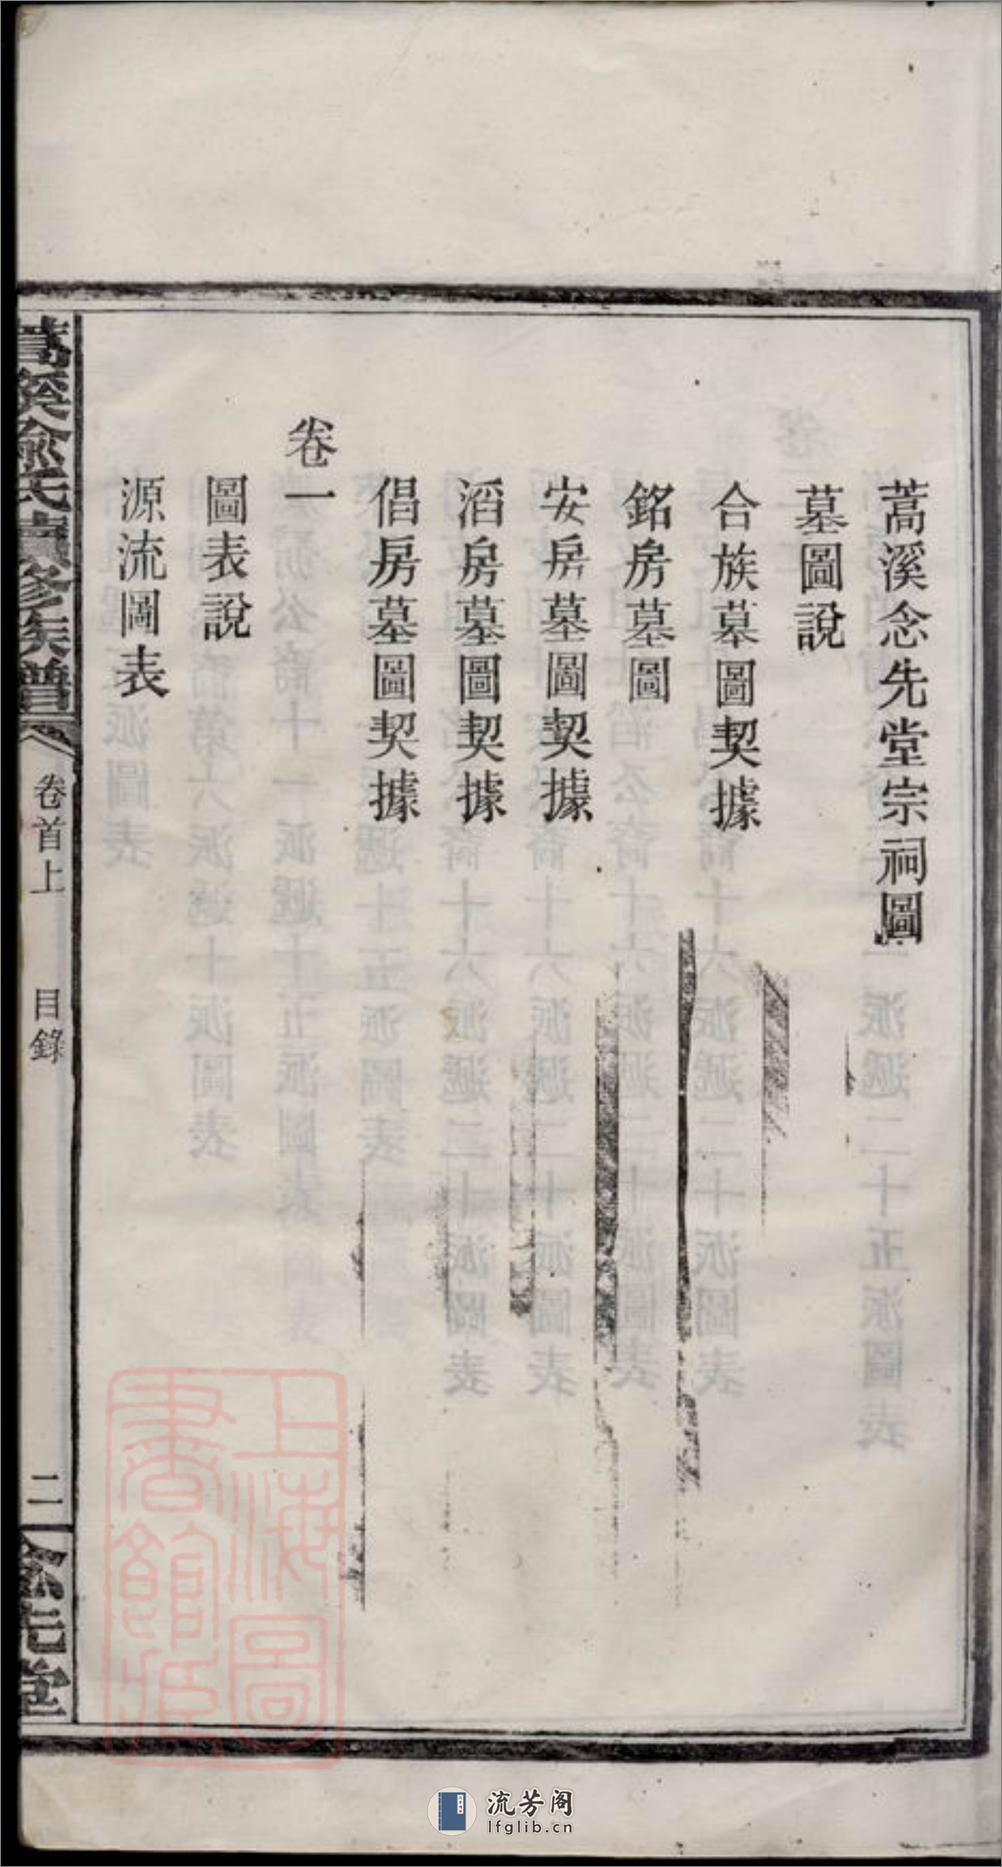 蒿溪念先堂宗祠圖
墓圖說
合族墓圖契據
銘房墓圖
安房墓圖契據
滔房墓圖契據
倡房墓圖契據
卷一
圖表說
源流圖表
蒿溪俞氏續修族譜
卷首上
目錄
二
念先堂
上海圖書館藏
流芳阁
lfglib.cn